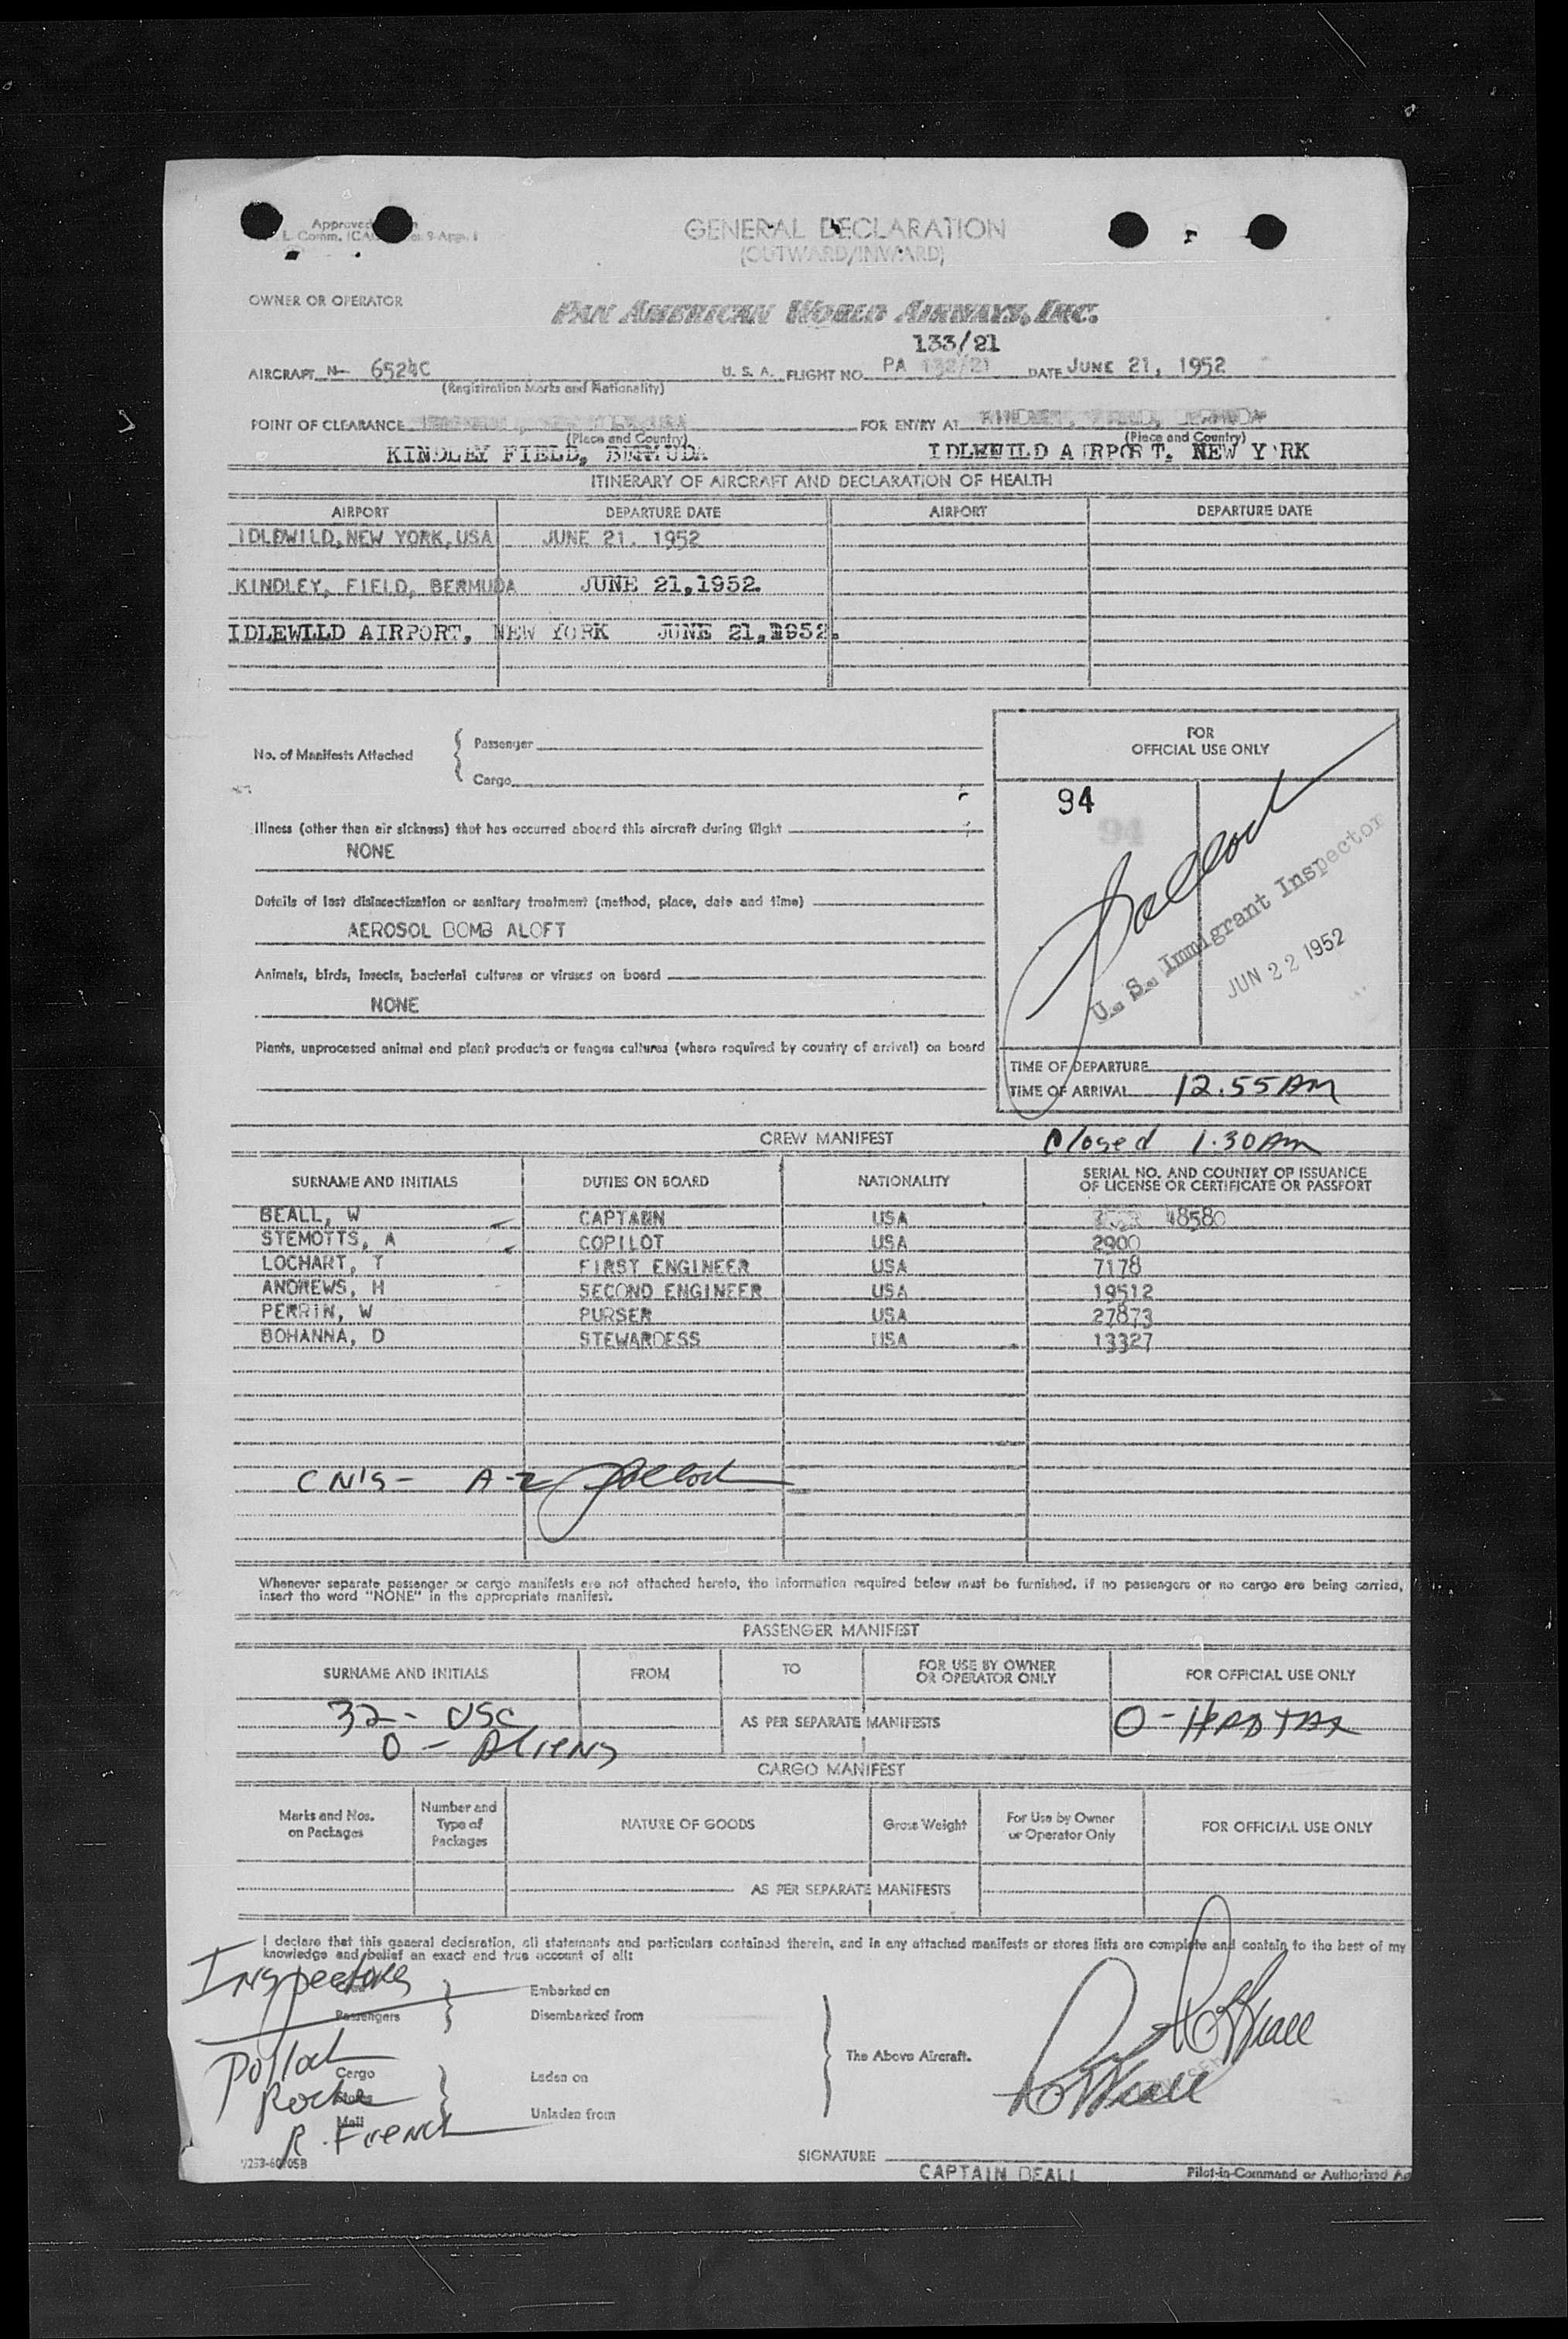 Approved
L. Comm. (CA 9-App. 1
GENERAL DECLARATION
(OUTWARD/INWARD)
OWNER OR OPERATOR
PAN AMERICAN WORLD AIRWAYS, INC.
133/21
AIRCRAFT N- 6524C U. S. A. FLIGHT NO. PA 132/21 DATE JUNE 21, 1952
(Registration Marks and Nationality)
POINT OF CLEARANCE FOR ENTRY AT
(Place and Country) (Place and Country)
KINDLEY FIELD, BERMUDA IDLEWILD A RPORT, NEW Y RK
ITINERARY OF AIRCRAFT AND DECLARATION OF HEALTH
AIRPORT DEPARTURE DATE AIRPORT DEPARTURE DATE
IDLEWILD, NEW YORK, USA JUNE 21. 1952
KINDLEY, FIELD, BERMUDA JUNE 21,1952.
IDLEWILD AIRPORT, NEW YORK JUNE 21,1952.
No. of Manifests Attached
Passenger
Cargo
FOR
OFFICIAL USE ONLY
94
94
Pollock
U. S. Immigrant Inspector
JUN 22 1952
Illness (other than air sickness) that has occurred aboard this aircraft during flight
NONE
Details of last disinsectization or sanitary treatment (method, place, date and time)
AEROSOL BOMB ALOFT
Animals, birds, insects, bacterial cultures or viruses on board
NONE
Plants, unprocessed animal and plant products or fungus cultures (where required by country of arrival) on board
TIME OF DEPARTURE
TIME OF ARRIVAL 12.55 AM
CREW MANIFEST Closed 1.30 Am
SURNAME AND INITIALS DUTIES ON BOARD NATIONALITY SERIAL NO. AND COUNTRY OF ISSUANCE
OF LICENSE OR CERTIFICATE OR PASSPORT
BEALL, W CAPTAIN USA 48580
STEMOTTS, A COPILOT USA 2900
LOCHART, T FIRST ENGINEER USA 7178
ANDREWS, H SECOND ENGINEER USA 19512
PERRIN, W PURSER USA 27873
BOHANNA, D STEWARDESS USA 13327
C N'S - A-2 Pollock
Whenever separate passenger or cargo manifests are not attached hereto, the information required below must be furnished. If no passengers or no cargo are being carried,
insert the word "NONE" in the appropriate manifest.
PASSENGER MANIFEST
SURNAME AND INITIALS FROM TO FOR USE BY OWNER
OR OPERATOR ONLY FOR OFFICIAL USE ONLY
32 - USC AS PER SEPARATE MANIFESTS 0 - HEAD TAX
0 - Aliens
CARGO MANIFEST
Marks and Nos.
on Packages
Number and
Type of
Packages
NATURE OF GOODS
Gross Weight
For Use by Owner
or Operator Only
FOR OFFICIAL USE ONLY
AS PER SEPARATE MANIFESTS
I declare that this general declaration, all statements and particulars contained therein, and in any attached manifests or stores lists are complete and contain to the best of my
knowledge and belief an exact and true account of all:
Inspectors
Passengers
Embarked on
Disembarked from
Pollock
Cargo
Roche
Stores
Mail
R. French
Laden on
Unladen from
The Above Aircraft.
SIGNATURE
CAPTAIN BEALL Pilot-in-Command or Authorized Ag